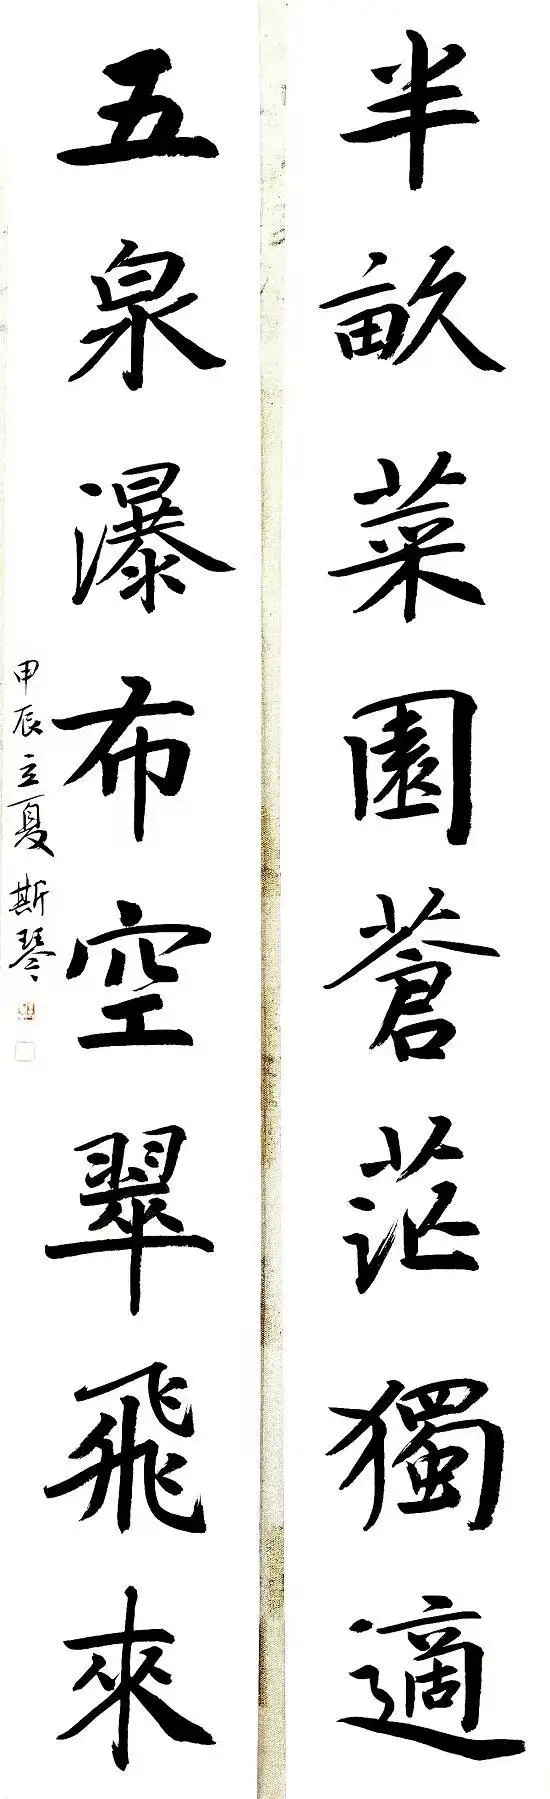 半畝菜園蒼茫獨適
五泉瀑布空翠飛來
甲辰立夏斯琴